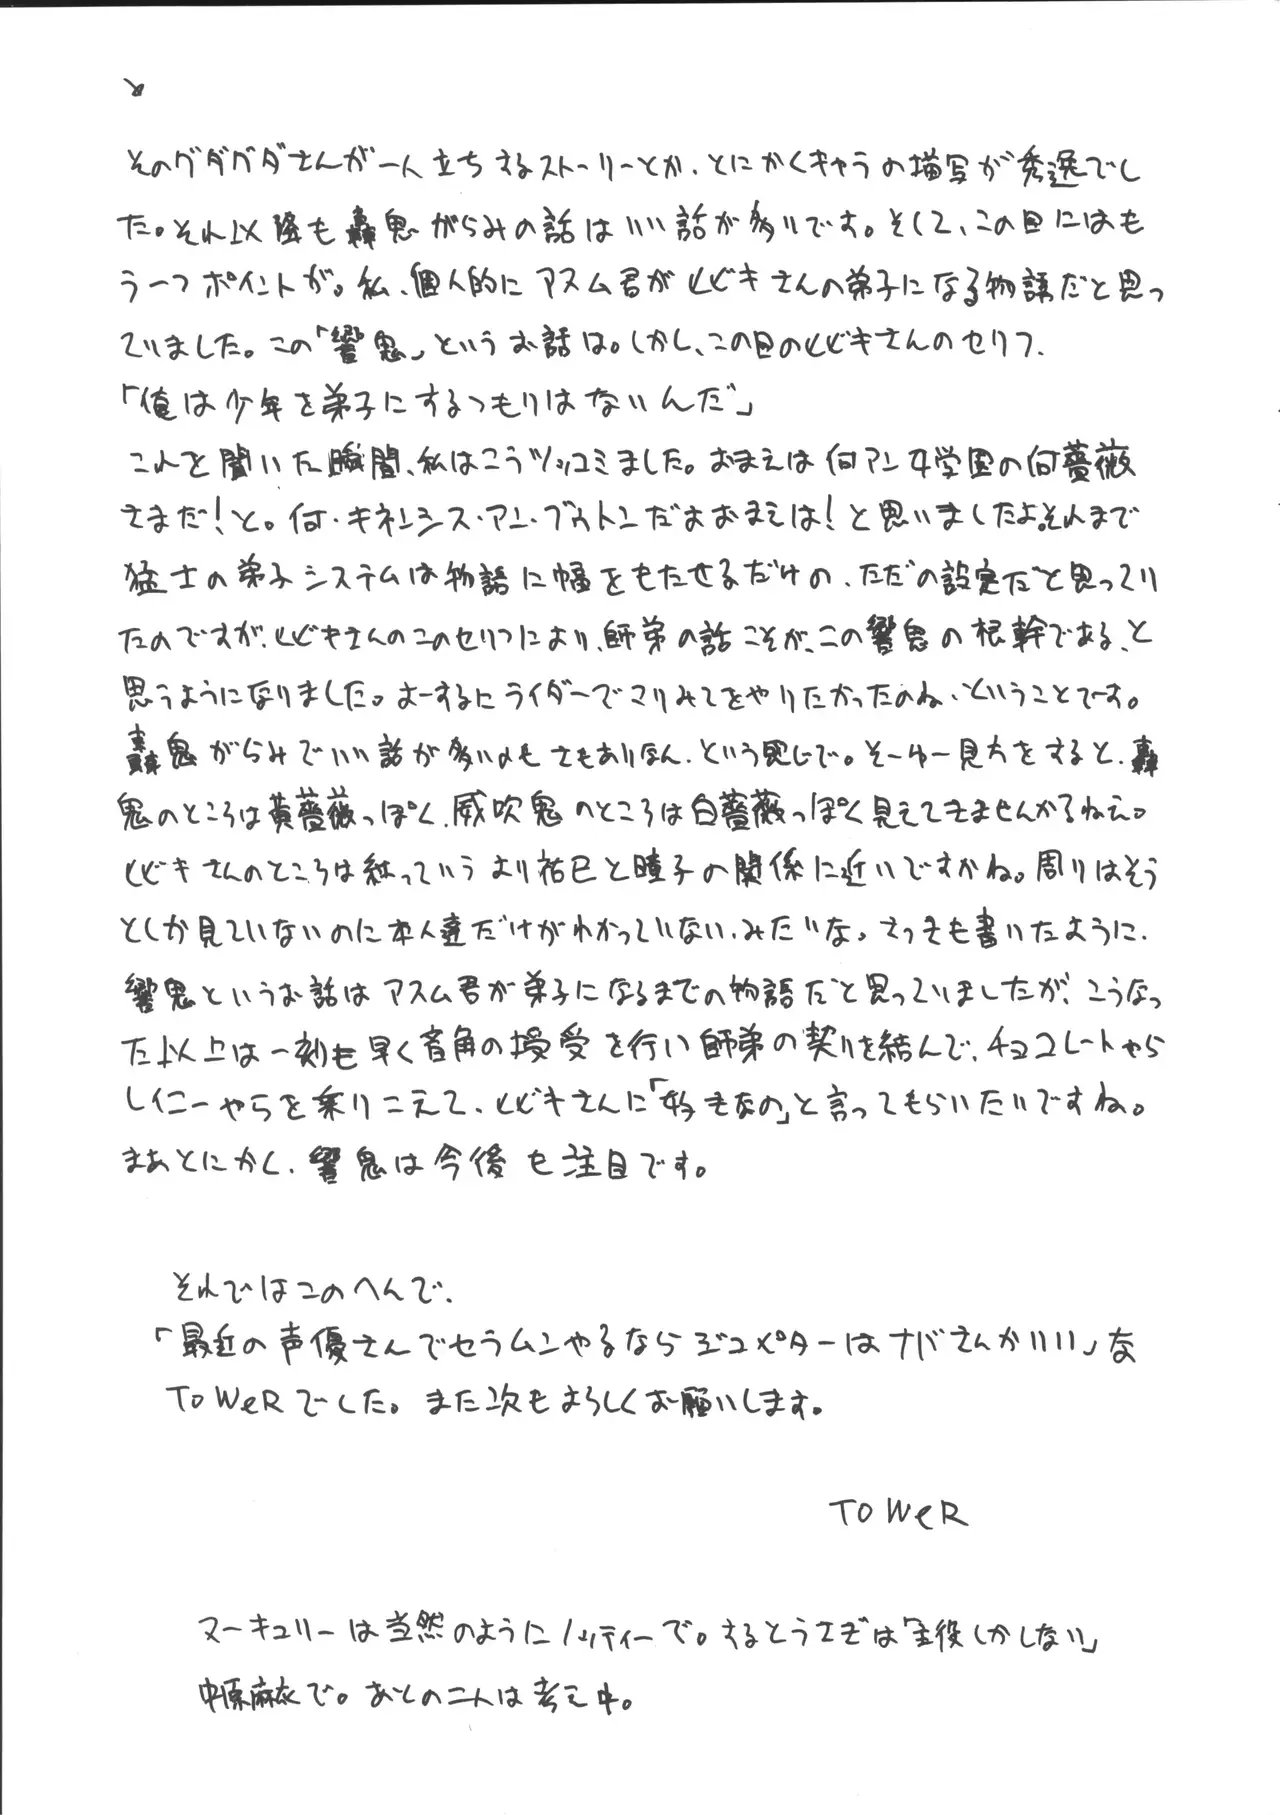 そのグダグダさんが一人立ちするストーリーとか、とにかくキャラの描写が秀逸でし
た。それ以降も轟鬼がらみの話はいい話が多いです。そして、この回にはも
う一つポイントが。私、個人的にアスム君がヒビキさんの弟子になる物語だと思っ
ていました。この「響鬼」というお話は。しかし、この回のヒビキさんのセリフ、
「俺は少年を弟子にするつもりはないんだ」
これを聞いた瞬間、私はこうツッコミました。おまえは何アン女学園の何薔薇
さまだ！と。何・キネンシス・アン・ブゥトンだよおまえは！と思いましたよ。それまで
猛士の弟子システムは物語に幅をもたせるだけの、ただの設定だと思ってい
たのですが、ヒビキさんのこのセリフにより、師弟の話こそが、この響鬼の根幹である、と
思うようになりました。よーするにライダーでマリみてをやりたかったのね、ということです。
轟鬼がらみでいい話が多いのもさもありなん、という感じで。そーゆー見方をすると、轟
鬼のところは黄薔薇っぽく、威吹鬼のところは白薔薇っぽく見えてきませんかねぇ。
ヒビキさんのところは紅っていうより祐巳と瞳子の関係に近いですかね。周りはそう
としか見ていないのに本人達だけがわかっていない、みたいな。さっきも書いたように、
響鬼というお話はアスム君が弟子になるまでの物語だと思っていましたが、こうなっ
た以上は一刻も早く音角の授受を行い師弟の契りを結んで、チョコレートやら
レイニーやらを乗りこえて、ヒビキさんに「好きなの」と言ってもらいたいですね。
まあとにかく、響鬼は今後も注目です。
それではこのへんで、
「最近の声優さんでセラムンやるならジュペターはナバさんがいい」な
ToWeRでした。また次もよろしくお願いします。
ToWeR
マーキュリーは当然のようにノッティーで。するとうさぎは「主役しかしない」
中原麻衣で。あとの二人は考え中。